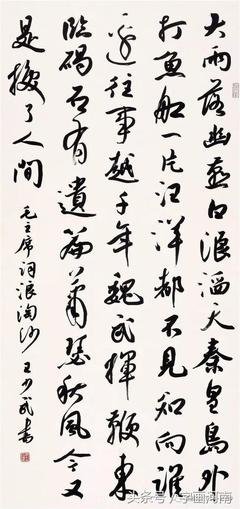 大雨落幽燕白浪滔天秦皇島外
打魚船一片汪洋都不見知向誰
邊往事越千年魏武揮鞭東
臨碣石有遺篇蕭瑟秋風今又
是換了人間
毛主席詞浪淘沙 王少武書
头条号 / 字画河南